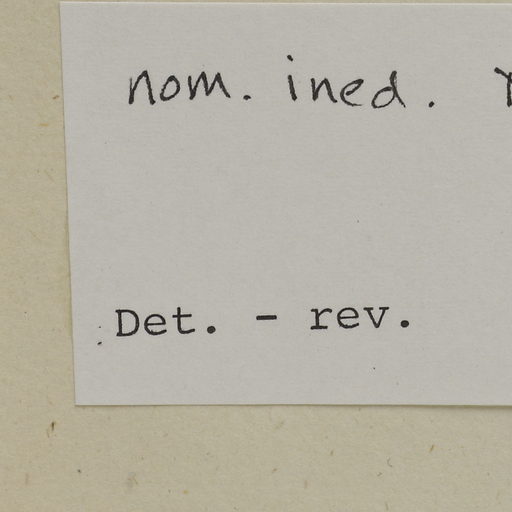 nom. ined.
Det. - rev.